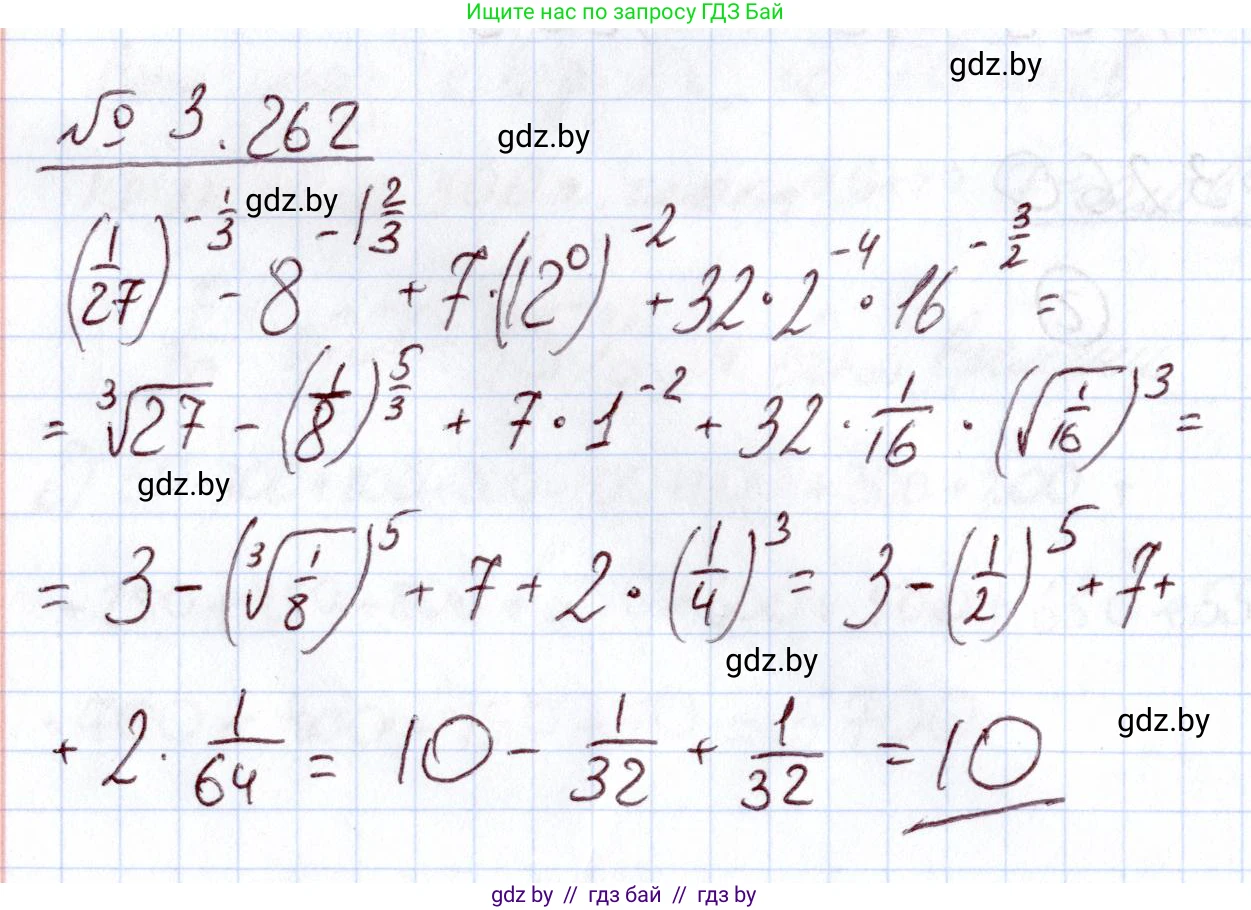 Ищите нас по запросу ГДЗ Бай
gdz.by
№ 3.262
gdz.by
gdz.by
(1/27)^(-1/3) - 8^(-1 2/3) + 7·(12^0)^(-2) + 32·2^(-4)·16^(-3/2) =
= ∛27 - (1/8)^(5/3) + 7·1^(-2) + 32·1/16·(√(1/16))^3 =
gdz.by
= 3 - (∛(1/8))^5 + 7 + 2·(1/4)^3 = 3 - (1/2)^5 + 7 +
gdz.by
gdz.by
+ 2·1/64 = 10 - 1/32 + 1/32 = 10
gdz by // гдз бай // гдз by